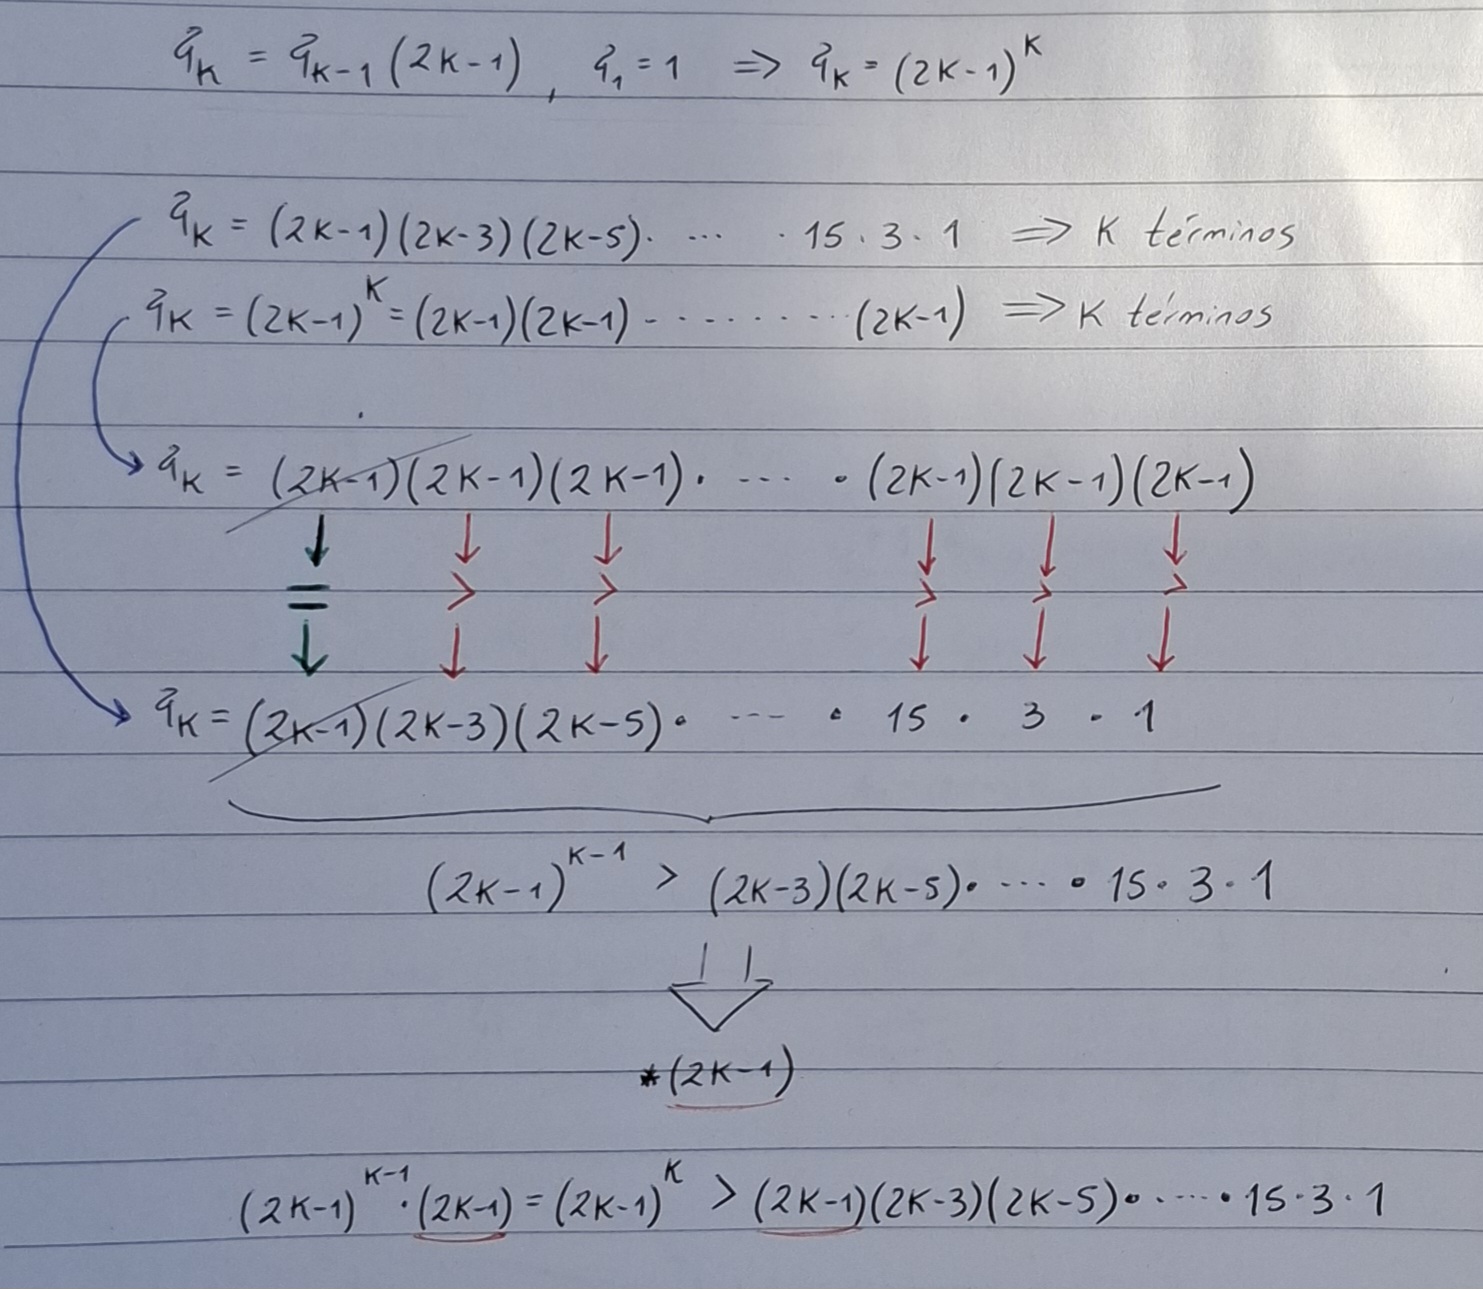 ą̃_K = ą̃_{K-1} (2K-1) , ą̃_1 = 1 ⇒ ą̃_K = (2K-1)^K
ą̃_K = (2K-1)(2K-3)(2K-5)· ... · 15 · 3 · 1 ⇒ K términos
ą̃_K = (2K-1)^K = (2K-1)(2K-1) · · · · · · · · · (2K-1) ⇒ K términos
ą̃_K = (2K-1)(2K-1)(2K-1) · ... · (2K-1)(2K-1)(2K-1)
↓ ↓ ↓ ↓ ↓ ↓
= > > > > >
↓ ↓ ↓ ↓ ↓ ↓
ą̃_K = (2K-1)(2K-3)(2K-5) · ... · 15 · 3 · 1
(2K-1)^{K-1} > (2K-3)(2K-5) · ... · 15 · 3 · 1
*(2K-1)
(2K-1)^{K-1} · (2K-1) = (2K-1)^K > (2K-1)(2K-3)(2K-5) · ... · 15 · 3 · 1